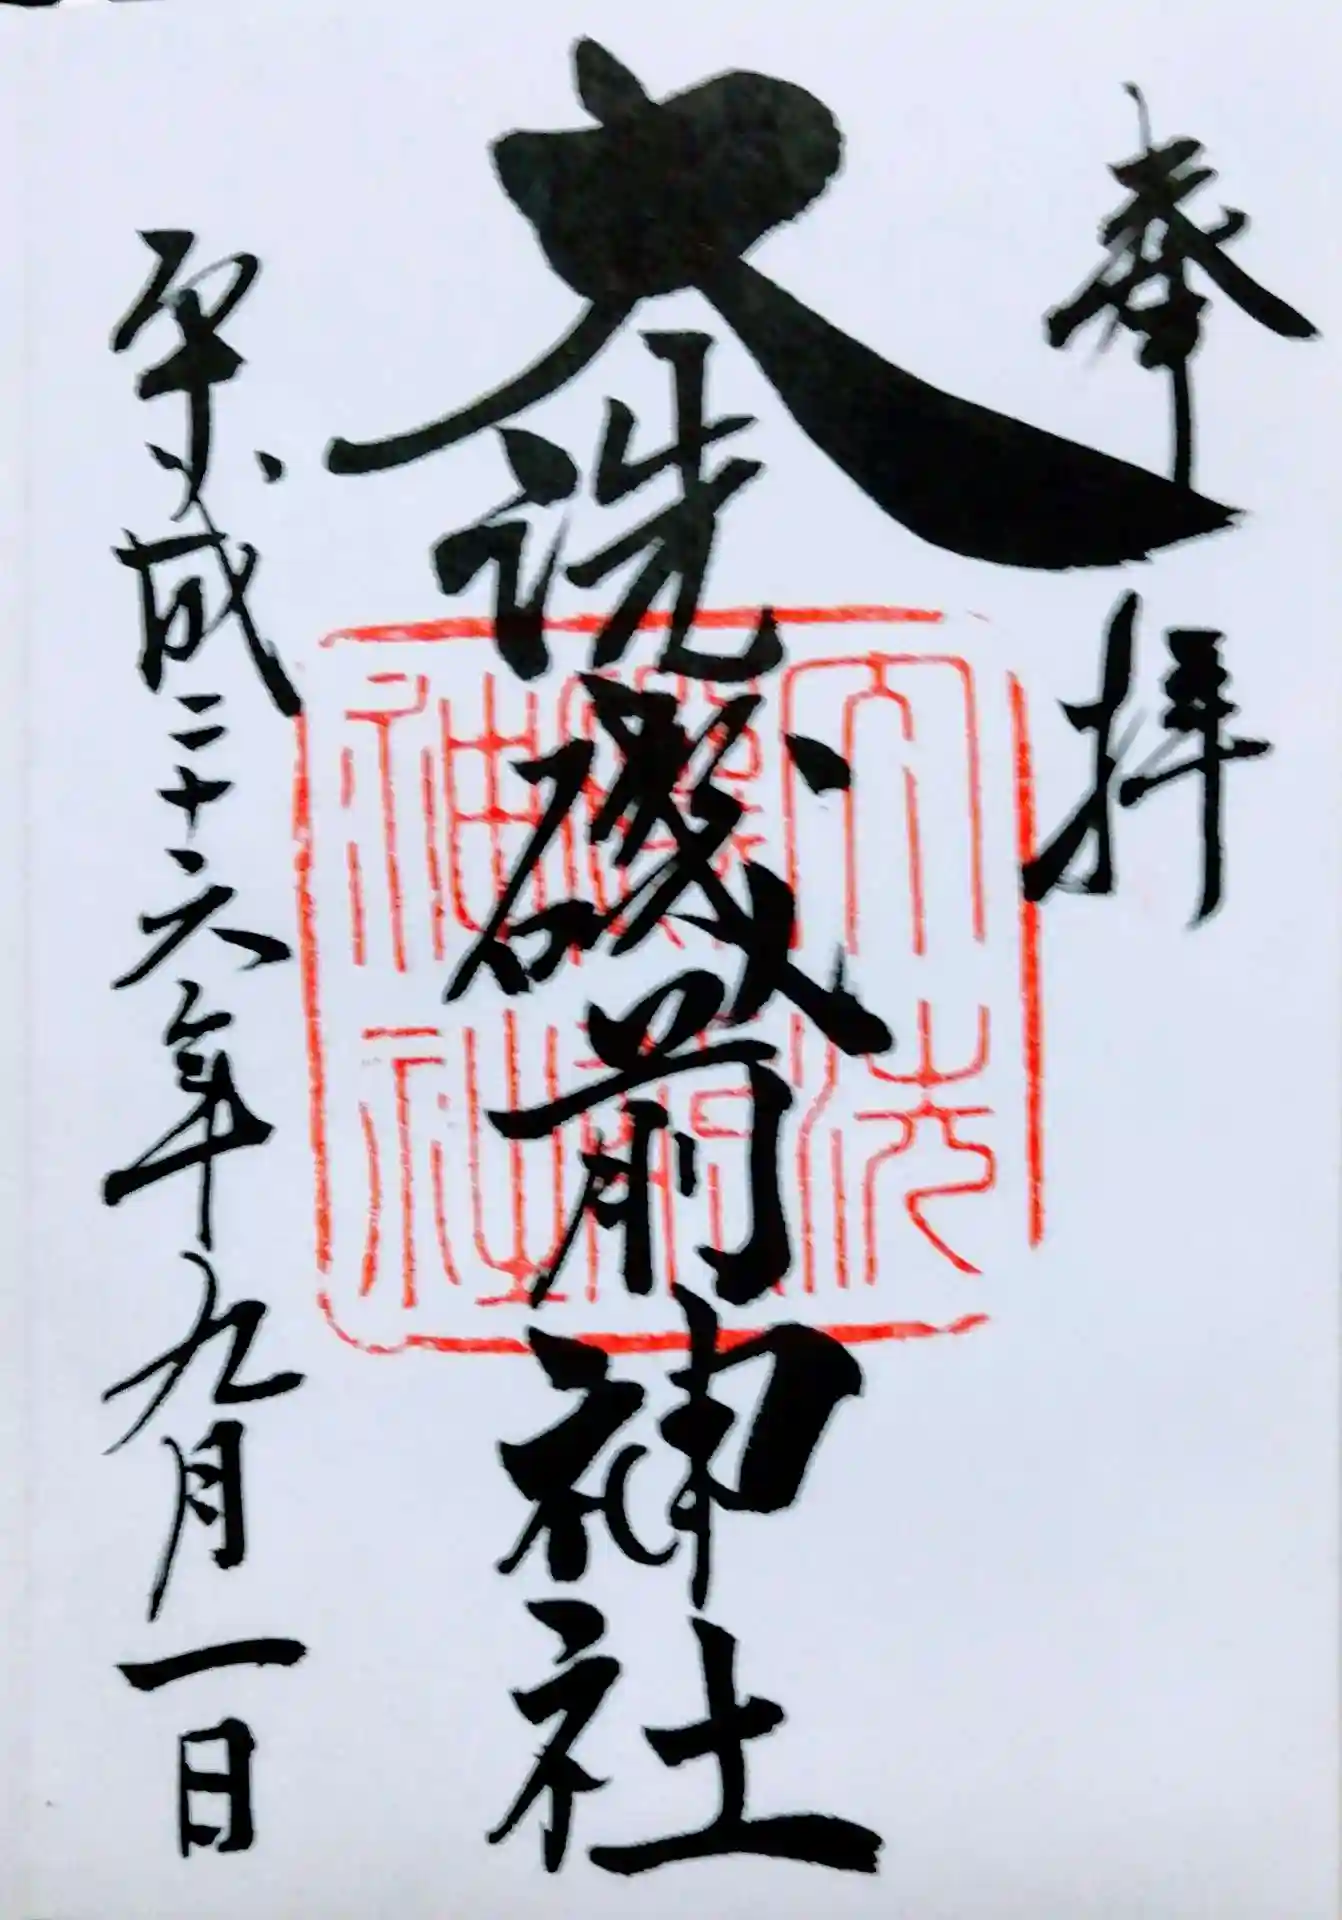 奉拝
大洗磯前神社
大洗
磯前
神社
平成二十六年九月一日